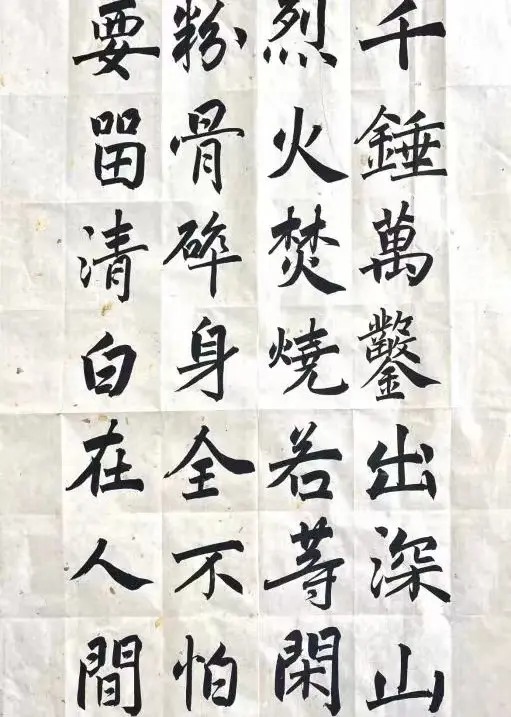 千錘萬鑿出深山
烈火焚燒若等閑
粉骨碎身全不怕
要留清白在人間